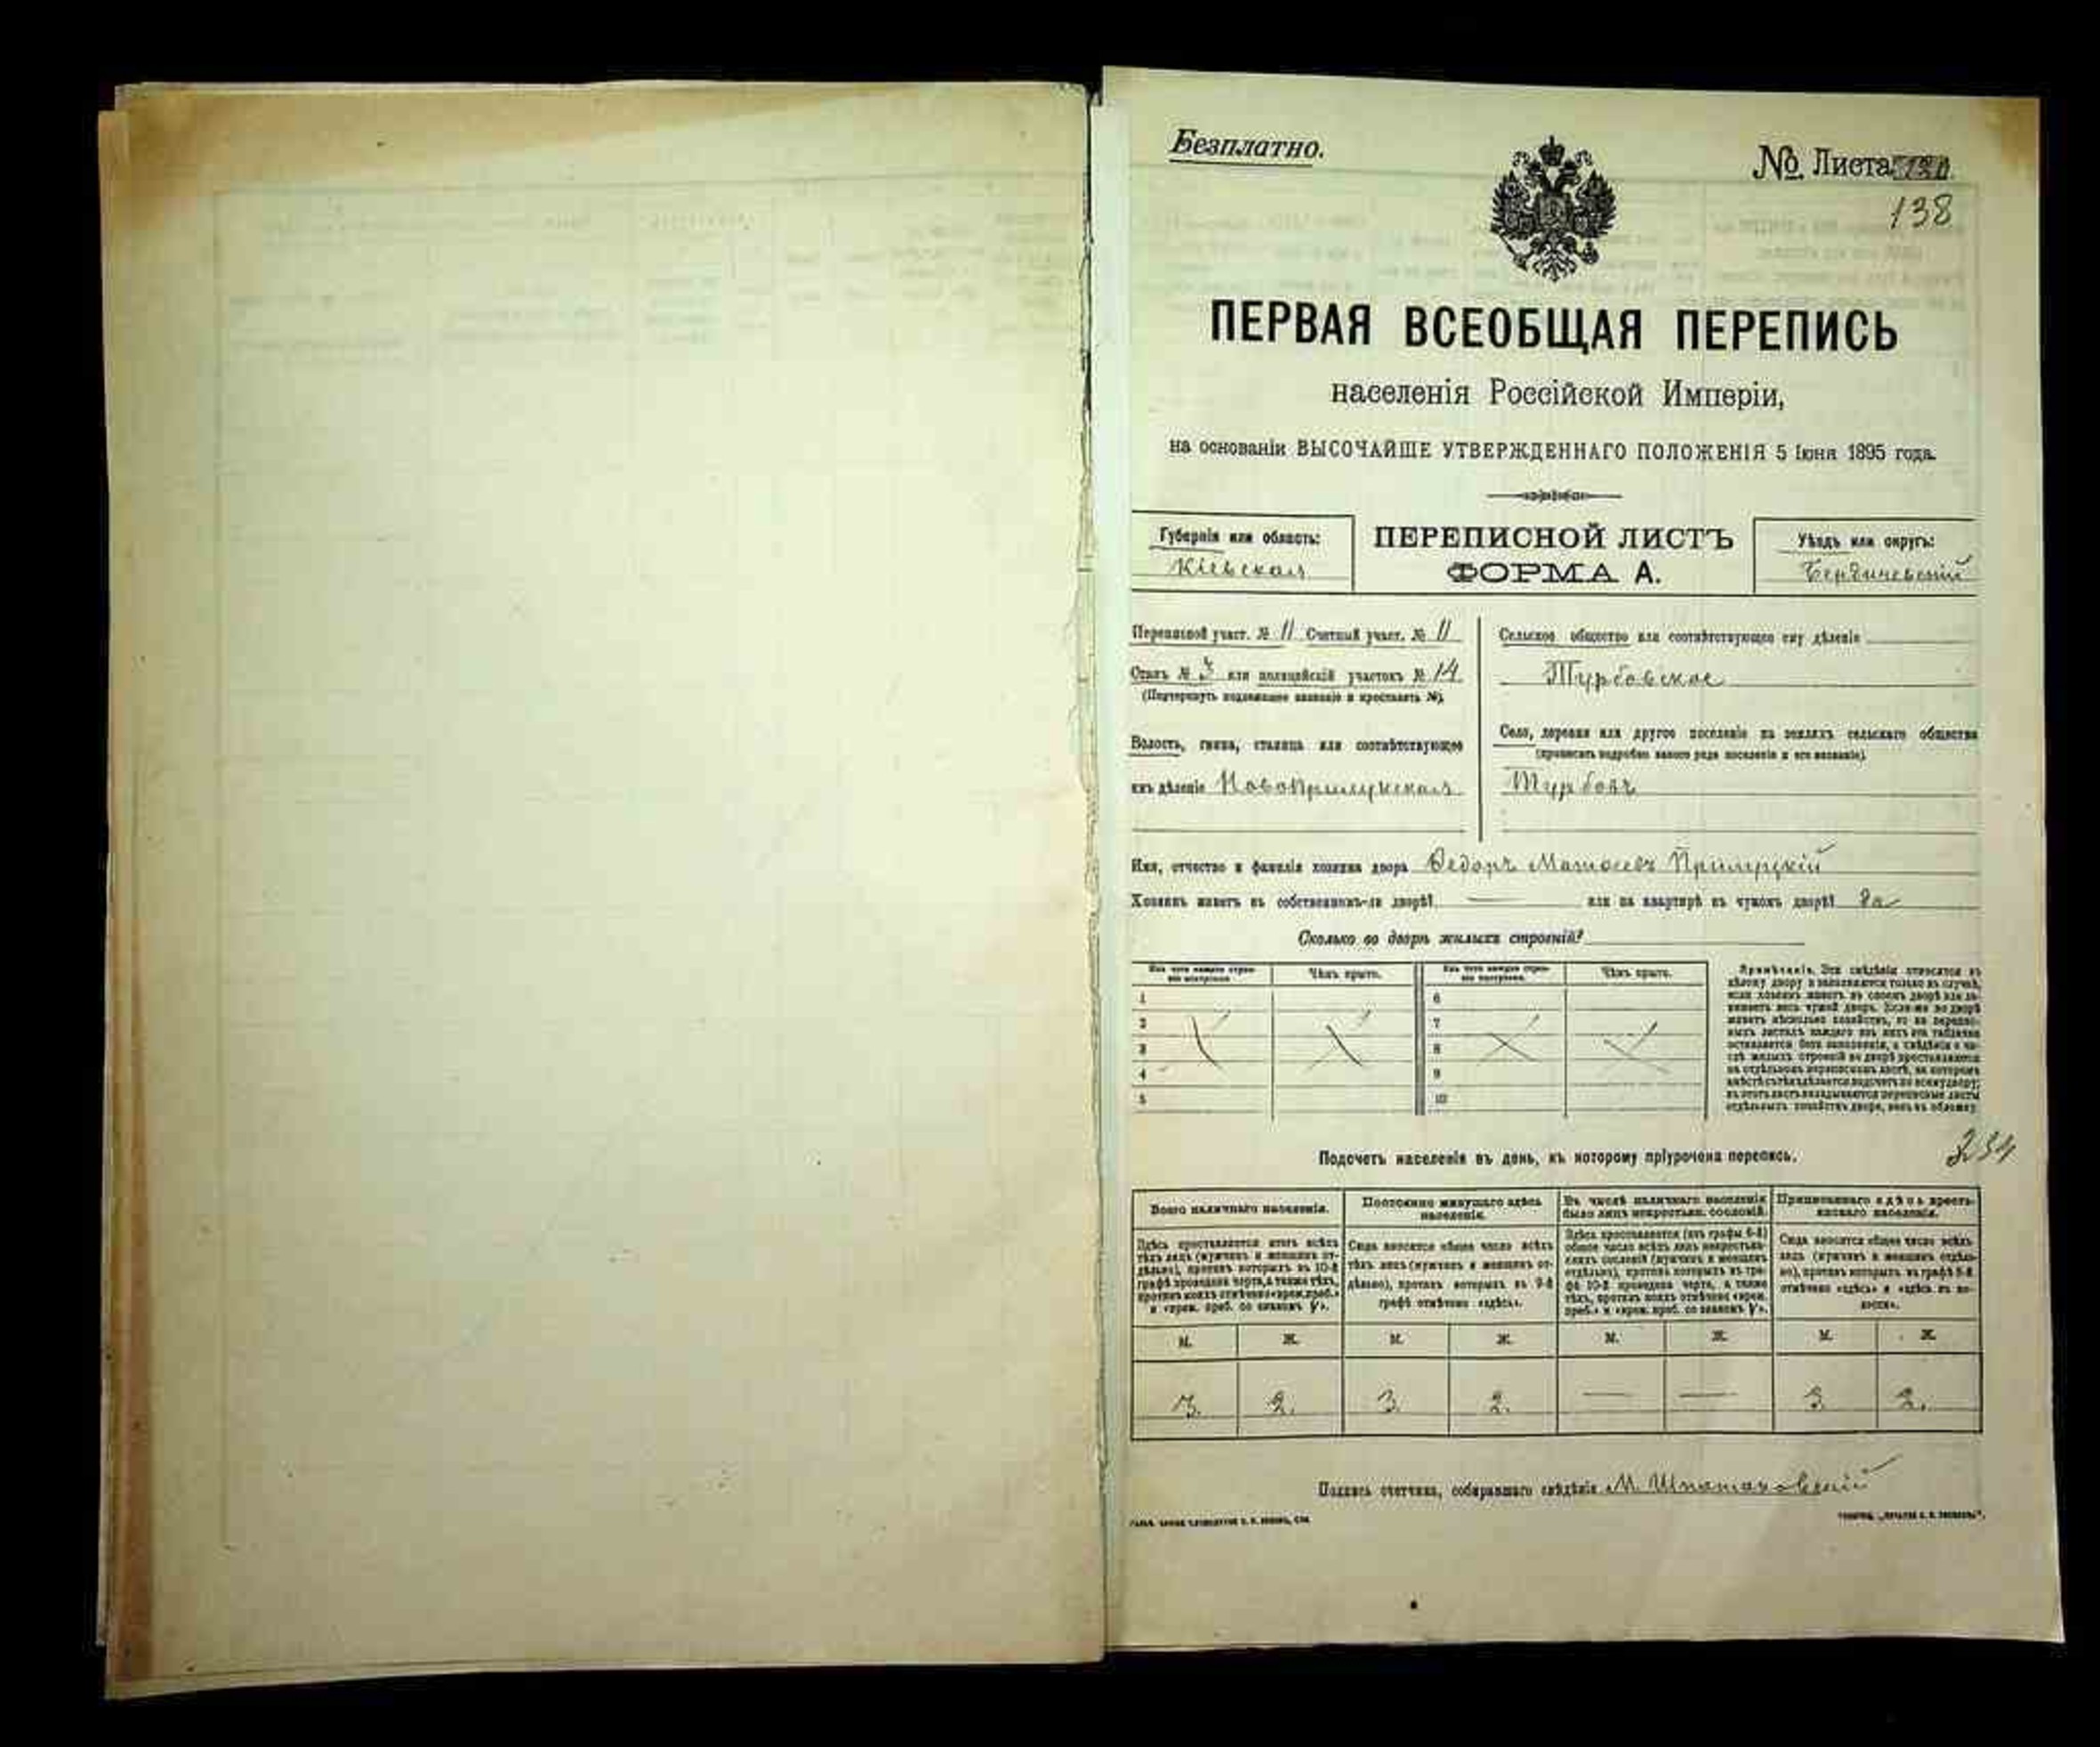 Безплатно.
№ Листа
138
ПЕРВАЯ ВСЕОБЩАЯ ПЕРЕПИСЬ
населенія Россійской Имперіи,
на основаніи ВЫСОЧАЙШЕ УТВЕРЖДЕННАГО ПОЛОЖЕНІЯ 5 Іюня 1895 года.
Губернія или область:
Кіевская
ПЕРЕПИСНОЙ ЛИСТЪ
ФОРМА А.
Уѣздъ или округъ:
Бердичевскій
Переписной участ. № 11 Счетный участ. № 11
Станъ № 3 или полицейскій участокъ № 14
(Подчеркнуть надлежащее названіе и проставить №).
Волость, гмина, станица или соотвѣтствующее
имъ дѣленіе НовоПрилукская
Сельское общество или соотвѣтствующее ему дѣленіе
Турбовское
Село, деревня или другое поселеніе на земляхъ сельскаго общества
(прописать подробно какого рода поселеніе и его названіе).
Турбовъ
Имя, отчество и фамилія хозяина двора Ѳедоръ
Хозяинъ живетъ въ собственномъ-ли дворѣ? — или на квартирѣ въ чужомъ дворѣ? да
Сколько во дворѣ жилыхъ строеній?
Изъ чего каждое строеніе построено. Чѣмъ крыто. Изъ чего каждое строеніе построено. Чѣмъ крыто.
1 6
2 7
3 8
4 9
5 10
Примѣчаніе. Эти свѣдѣнія относятся къ
цѣлому двору и заполняются только въ случаѣ,
если хозяинъ живетъ въ своемъ дворѣ или занимаетъ весь чужой дворъ.
234
Подсчетъ населенія въ день, къ которому пріурочена перепись.
Всего наличнаго населенія.
Постоянно живущаго здѣсь населенія.
Въ числѣ наличнаго населенія было лицъ некрестьян. сословій.
Приписаннаго здѣсь крестьянскаго населенія.
Здѣсь проставляется итогъ всѣхъ
тѣхъ лицъ (мужчинъ и женщинъ отдѣльно), противъ которыхъ въ 10-й
графѣ проведена черта, а также тѣхъ,
противъ коихъ отмѣчено «врем. преб.»
и «врем. преб. со знакомъ V».
Сюда вносится общее число всѣхъ
тѣхъ лицъ (мужчинъ и женщинъ отдѣльно), противъ которыхъ въ 9-й
графѣ отмѣчено «здѣсь».
Здѣсь проставляется (изъ графы 6-й)
общее число всѣхъ лицъ некрестьянскихъ сословій (мужчинъ и женщинъ
отдѣльно), противъ которыхъ въ графѣ 10-й проведена черта, а также
тѣхъ, противъ коихъ отмѣчено «врем.
преб.» и «врем. преб. со знакомъ V».
Сюда вносится общее число всѣхъ
лицъ (мужчинъ и женщинъ отдѣльно), противъ которыхъ въ графѣ 8-й
отмѣчено «здѣсь» и «здѣсь въ волости».
М. Ж. М. Ж. М. Ж. М. Ж.
3. 2. 3. 2. — — 3 2.
Подпись счетчика, собиравшаго свѣдѣнія М.